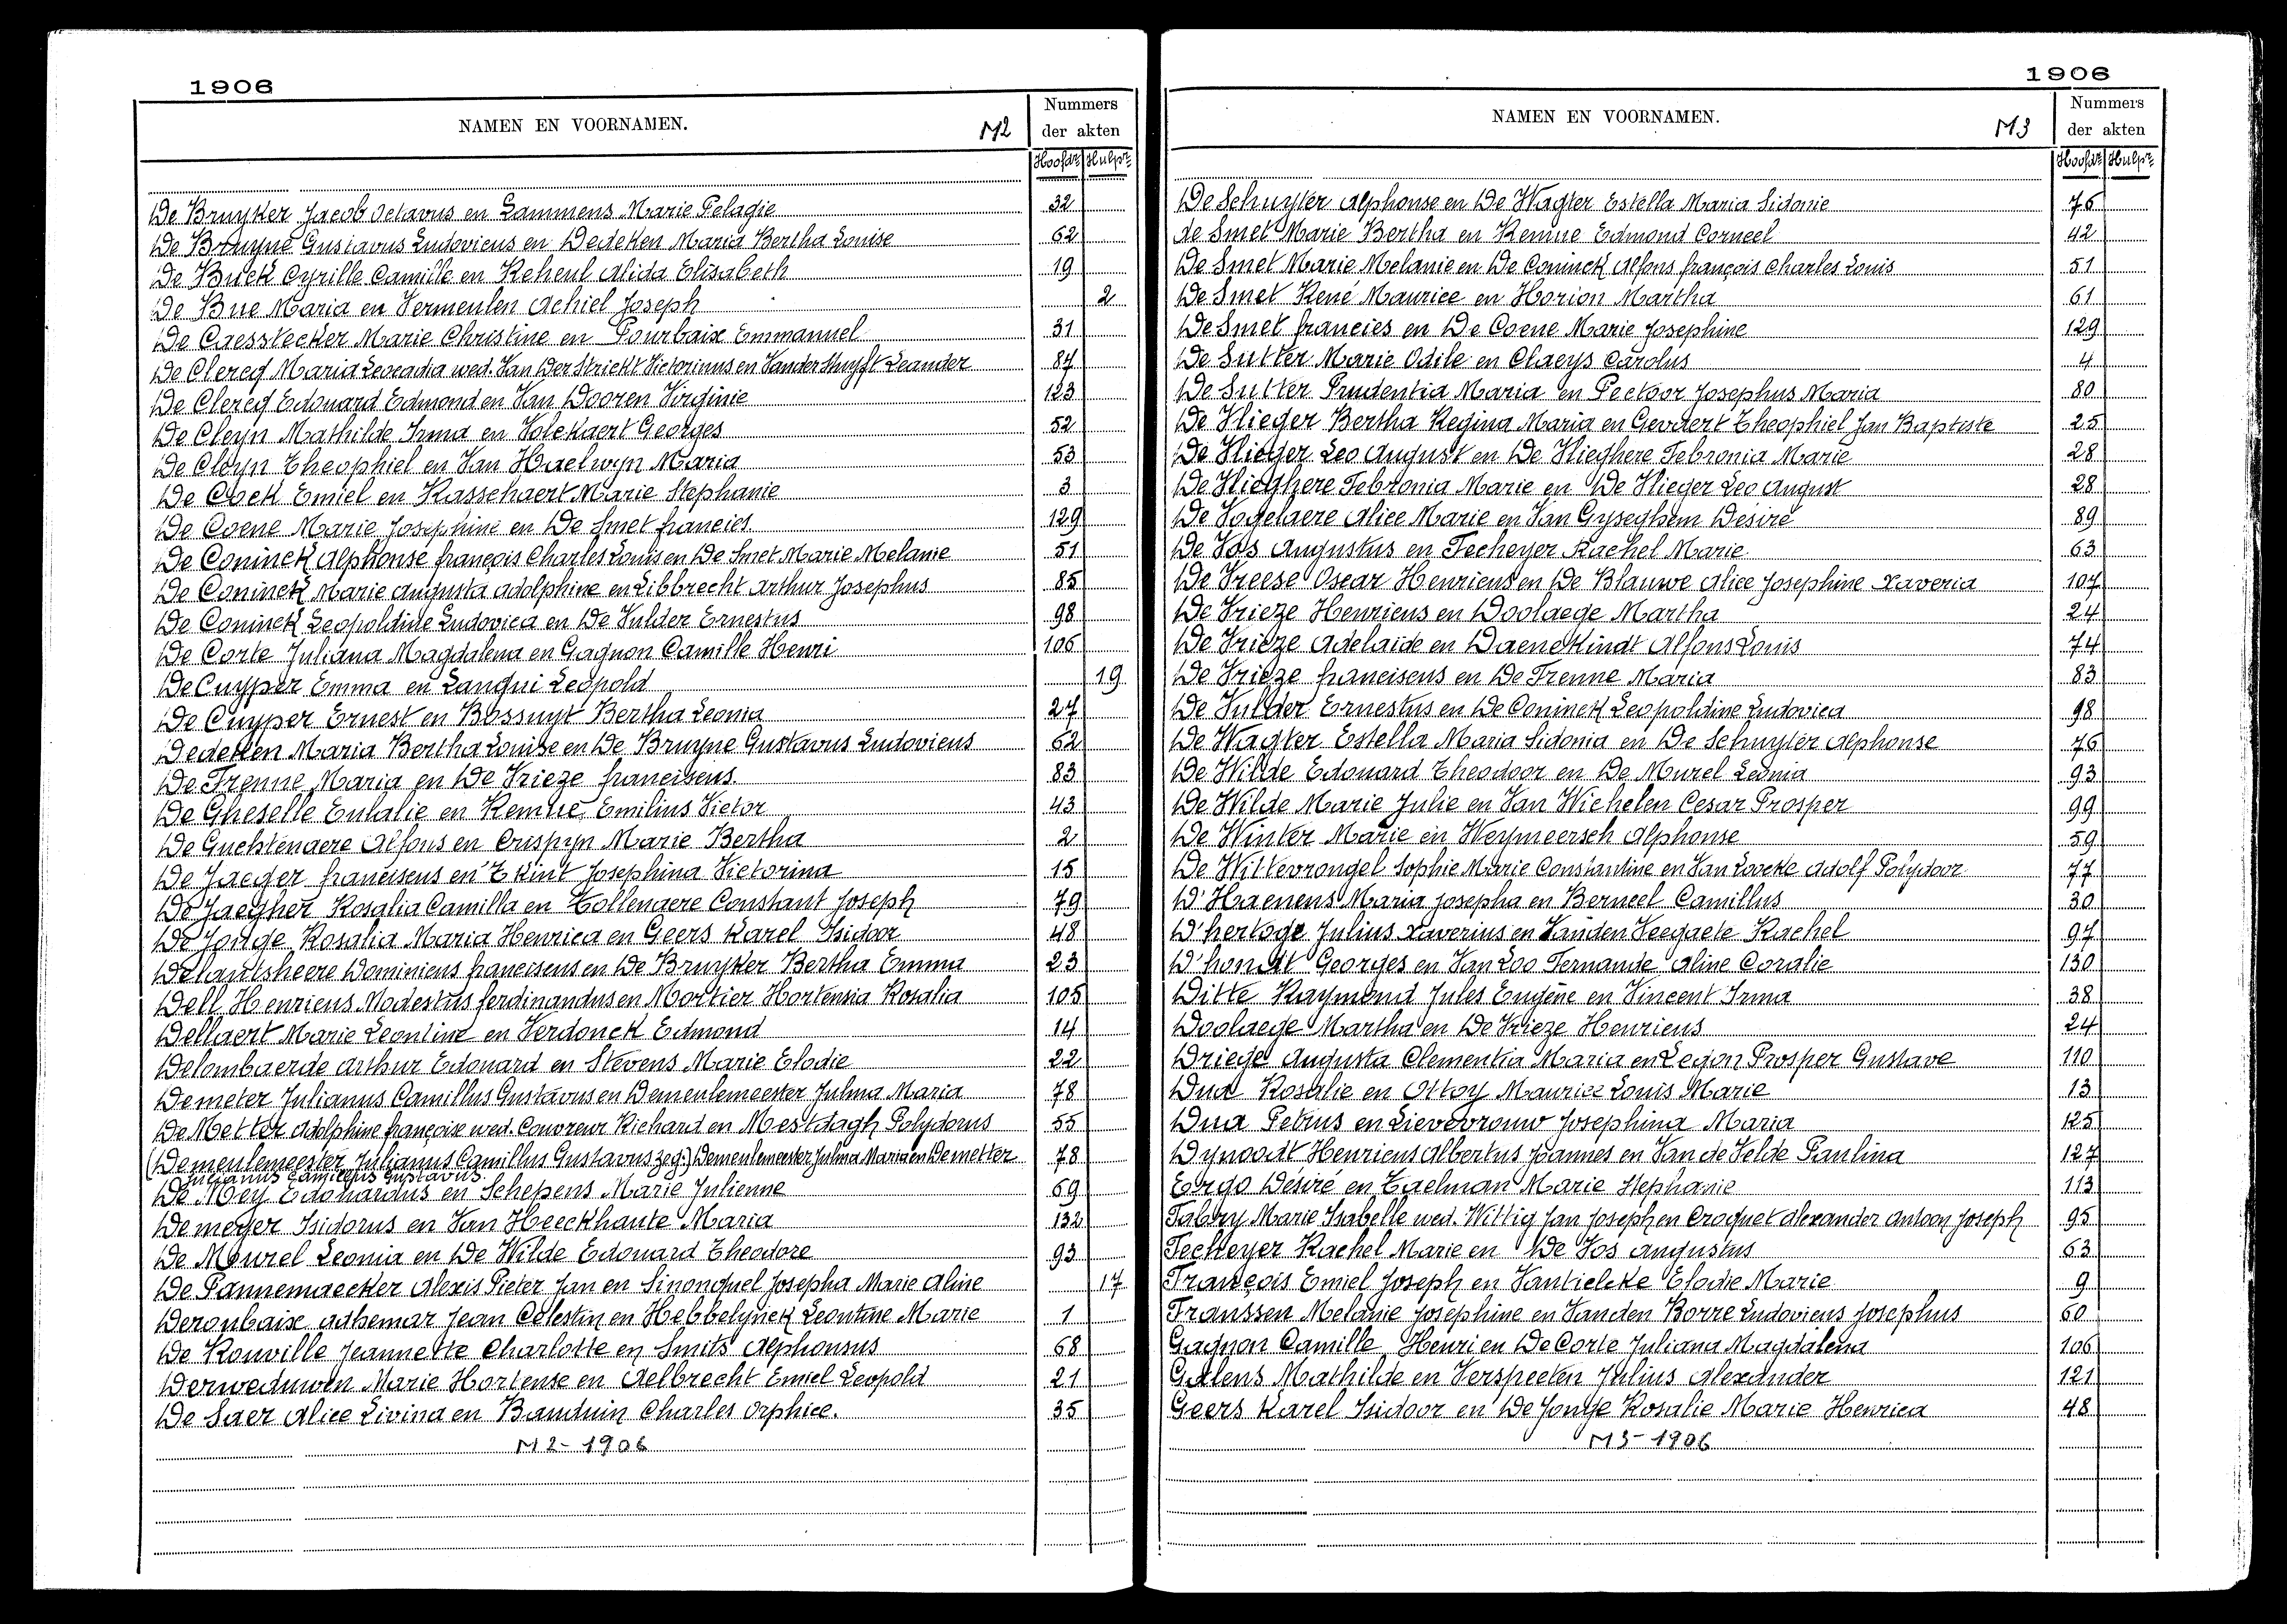 1906
NAMEN EN VOORNAMEN. M2 Nummers der akten
Hoofdr. Hulpr.
De Bruyker Jacob Octavus en Lammens Marie Pelagie 32
De Bruyne Gustavus Ludovicus en Dedeken Maria Bertha Louise 62
De Buck Cyrille Camille en Keheul Alida Elisabeth 19
De Bue Maria en Vermeulen Achiel Joseph 2
De Caesstecker Marie Christine en Pourbaix Emmanuel 31
De Clercq Maria Leocadia wed. Van Der Strickt Victorinus en Vander Stuyft Leander 87
De Clercq Edouard Edmond en Van Dooren Virginie 123
De Cleyn Mathilde Irma en Volckaert Georges 52
De Cleyn Theophiel en Van Haelwyn Maria 53
De Cock Emiel en Kasschaert Marie Stephanie 3
De Coene Marie Josephine en De Smet francies 129
De Coninck Alphonse françois Charles Louis en De Smet Marie Melanie 51
De Coninck Marie Augusta Adolphine en Libbrecht Arthur Josephus 85
De Coninck Leopoldine Ludovica en De Vulder Ernestus 98
De Corte Juliana Magdalena en Gagnon Camille Henri 106
De Cuyper Emma en Langui Leopold 19
De Cuyper Ernest en Bossuyt Bertha Leonia 27
Dedeken Maria Bertha Louise en De Bruyne Gustavus Ludovicus 62
De Frenne Maria en De Vrieze franciscus 83
De Gheselle Eulalie en Kemne Emilius Victor 43
De Guchtenaere Alfons en Crispyn Marie Bertha 2
De Jaeger franciscus en 'T Kint Josephina Victorina 15
De Jaegher Rosalia Camilla en Tollenaere Constant Joseph 79
De Jonge Rosalia Maria Henrica en Geers Karel Isidoor 48
Delantsheere Dominicus franciscus en De Bruyker Bertha Emma 23
Dell Henricus Modestus ferdinandus en Mortier Hortensia Rosalia 105
Dellaert Marie Leontine en Verdonck Edmond 14
Delombaerde Arthur Edouard en Stevens Marie Elodie 22
Demeter Julianus Camillus Gustavus en Demeulemeester Julma Maria 78
De Metter Adolphine françoise wed. Couvreur Richard en Mestdagh Polydorus 55
(Demeulemeester Julianus Camillus Gustavus zeg:) Demeulemeester Julma Maria en Demetter 78
Julianus Camillus Gustavus
De Mey Edouardus en Schepens Marie Julienne 69
Demeyer Isidorus en Van Heeckhaute Maria 132
De Meurel Leonia en De Wilde Edouard Theodore 93
De Pannemaecker Alexis Pieter Jan en Sinonquel Josepha Marie Aline 17
Deroubaix Adhemar Jean Célestin en Hebbelynck Leontine Marie 1
De Rouville Jeannette Charlotte en Smits Alphonsus 68
Derweduwen Marie Hortense en Aelbrecht Emiel Leopold 21
De Saer Alice Livina en Bauduin Charles Orphice. 35
M2-1906
1906
NAMEN EN VOORNAMEN. M3 Nummers der akten
Hoofdr. Hulpr.
De Schuyter Alphonse en De Wagter Estella Maria Sidonie 76
de Smet Marie Bertha en Kemne Edmond Corneel 42
De Smet Marie Melanie en De Coninck Alfons françois Charles Louis 51
De Smet René Maurice en Horion Martha 61
De Smet francies en De Coene Marie Josephine 129
De Sutter Marie Odile en Claeys Carolus 4
De Sutter Prudentia Maria en Pectoor Josephus Maria 80
De Vlieger Bertha Regina Maria en Gevaert Theophiel Jan Baptiste 25
De Vlieger Leo August en De Vlieghere Febronia Marie 28
De Vlieghere Febronia Marie en De Vlieger Leo August 28
De Vogelaere Alice Marie en Van Gyseghem Desiré 89
De Vos Augustus en Fecheyer Rachel Marie 63
De Vreese Oscar Henricus en De Blauwe Alice Josephine Xaveria 107
De Vrieze Henricus en Doolaege Martha 24
De Vrieze Adelaide en Daenekindt Alfons Louis 74
De Vrieze franciscus en De Frenne Maria 83
De Vulder Ernestus en De Coninck Leopoldine Ludovica 98
De Wagter Estella Maria Sidonia en De Schuyter Alphonse 76
De Wilde Edouard Theodoor en De Murel Leonia 93
De Wilde Marie Julie en Van Wichelen Cesar Prosper 99
De Winter Marie en Weymeersch Alphonse 59
De Wittevrongel Sophie Marie Constantine en Van Loocke Adolf Polydoor 77
D'Haenens Maria Josepha en Berneel Camillus 30
D'hertoge Julius Xaverius en Vanden Veegaete Rachel 97
D'hondt Georges en Van Loo Fernande Aline Coralie 130
Ditte Raymond Jules Eugène en Vincent Irma 38
Doolaege Martha en De Vrieze Henricus 24
Driege Augusta Clementia Maria en Legon Prosper Gustave 110
Dua Rosalie en Ottoy Maurice Louis Marie 13
Dua Petrus en Lievevrouw Josephina Maria 125
Dynoodt Henricus Albertus Joannes en Van de Velde Paulina 127
Ergo Désiré en Taelman Marie Stephanie 113
Fabry Marie Isabelle wed. Wittig Jan Joseph en Croquet Alexander Antoon Joseph 95
Fecheyer Rachel Marie en De Vos Augustus 63
François Emiel Joseph en Vantielcke Elodie Marie 9
Franssen Melanie Josephine en Vanden Borre Ludovicus Josephus 60
Gagnon Camille Henri en De Corte Juliana Magdalena 106
Galens Mathilde en Verspeeten Julius Alexander 121
Geers Karel Isidoor en De Jonge Rosalie Marie Henrica 48
M3-1906